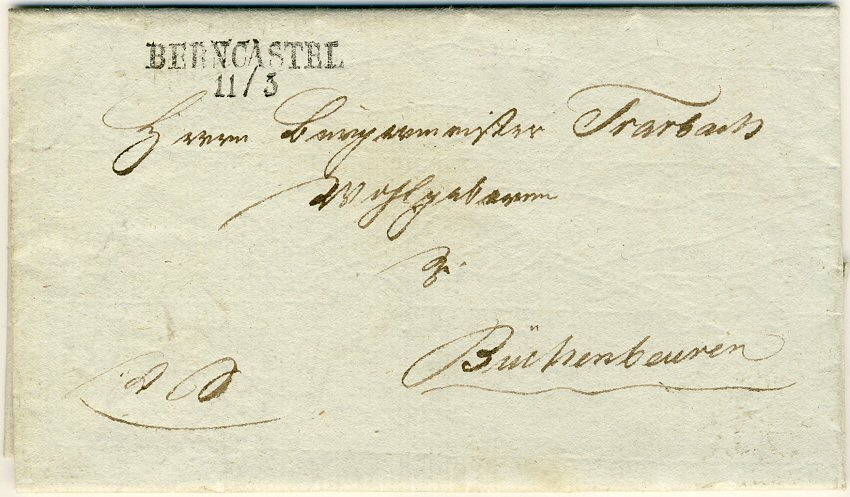 BERNCASTEL
11/3
Herrn Bürgermeister Trarbach
Wohlgeboren
zu
Büchenbeuren